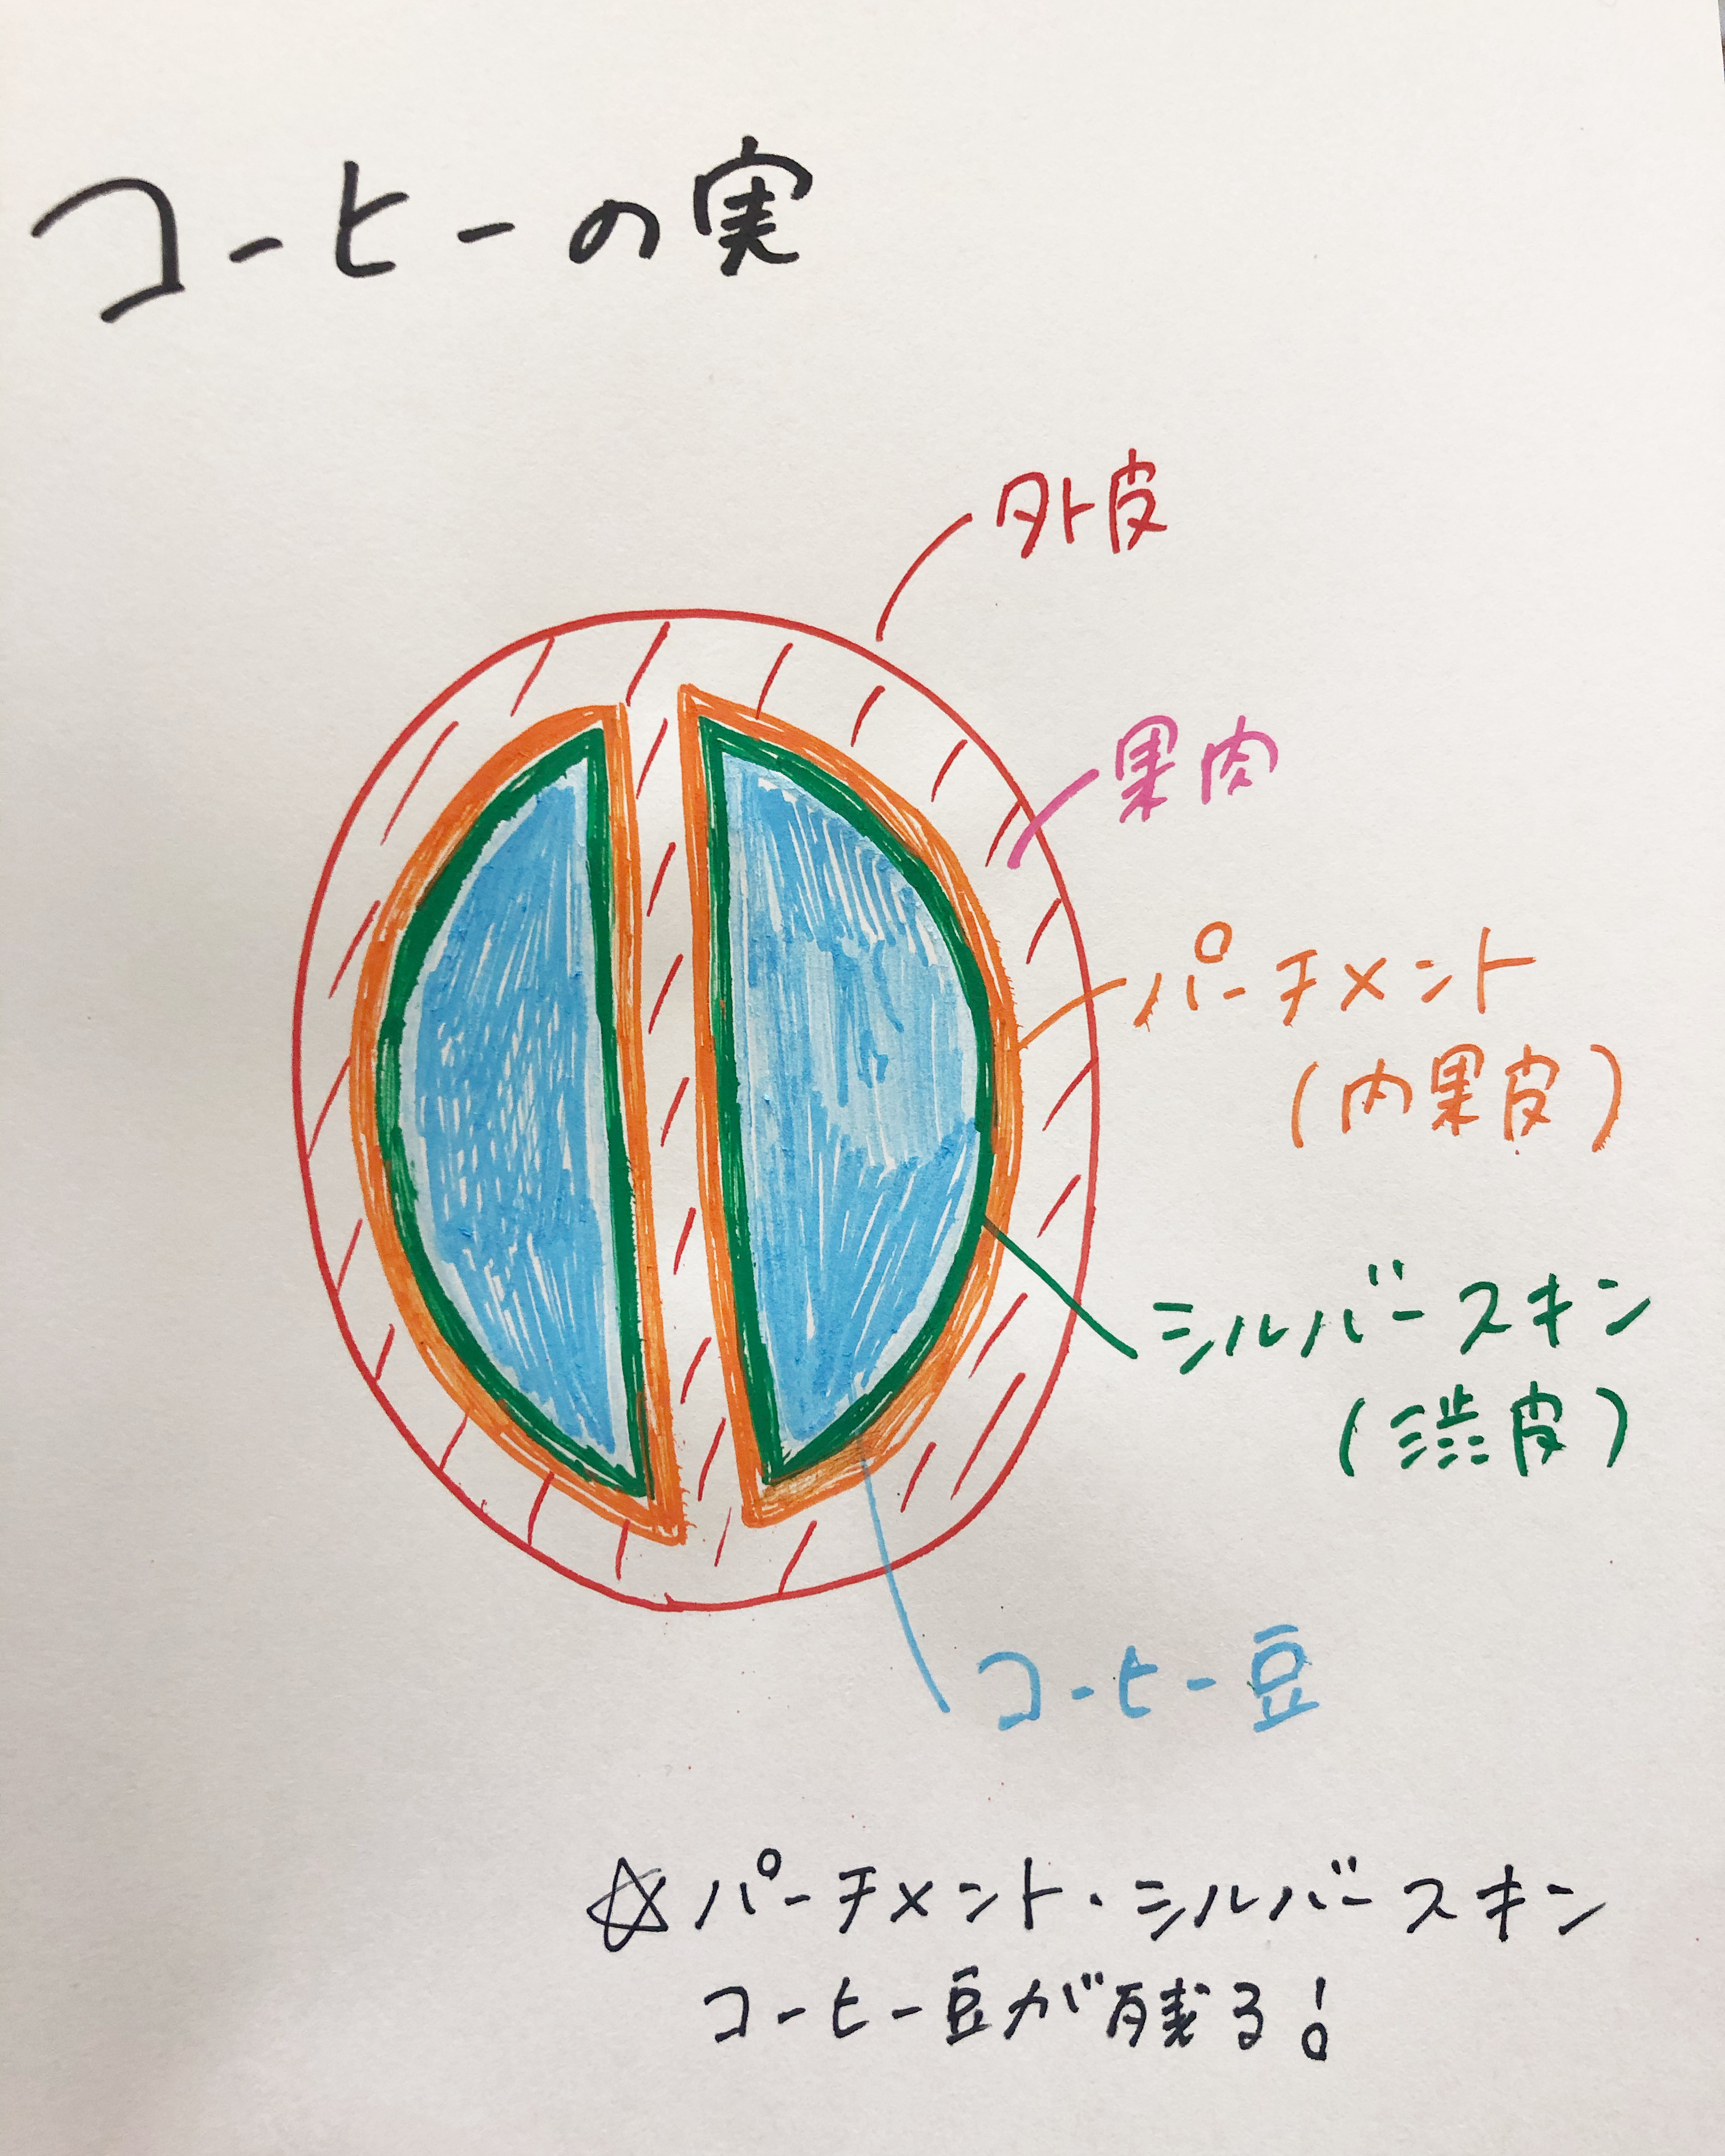 コーヒーの実
外皮
果肉
パーチメント
(内果皮)
シルバースキン
(渋皮)
コーヒー豆
☆パーチメント・シルバースキン
コーヒー豆が残る!